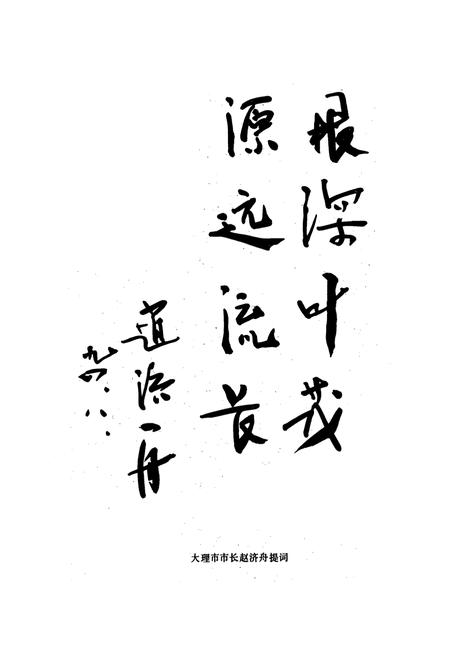 根深叶茂
源远流長
趙济舟
九四.八.
大理市市长赵济舟提词